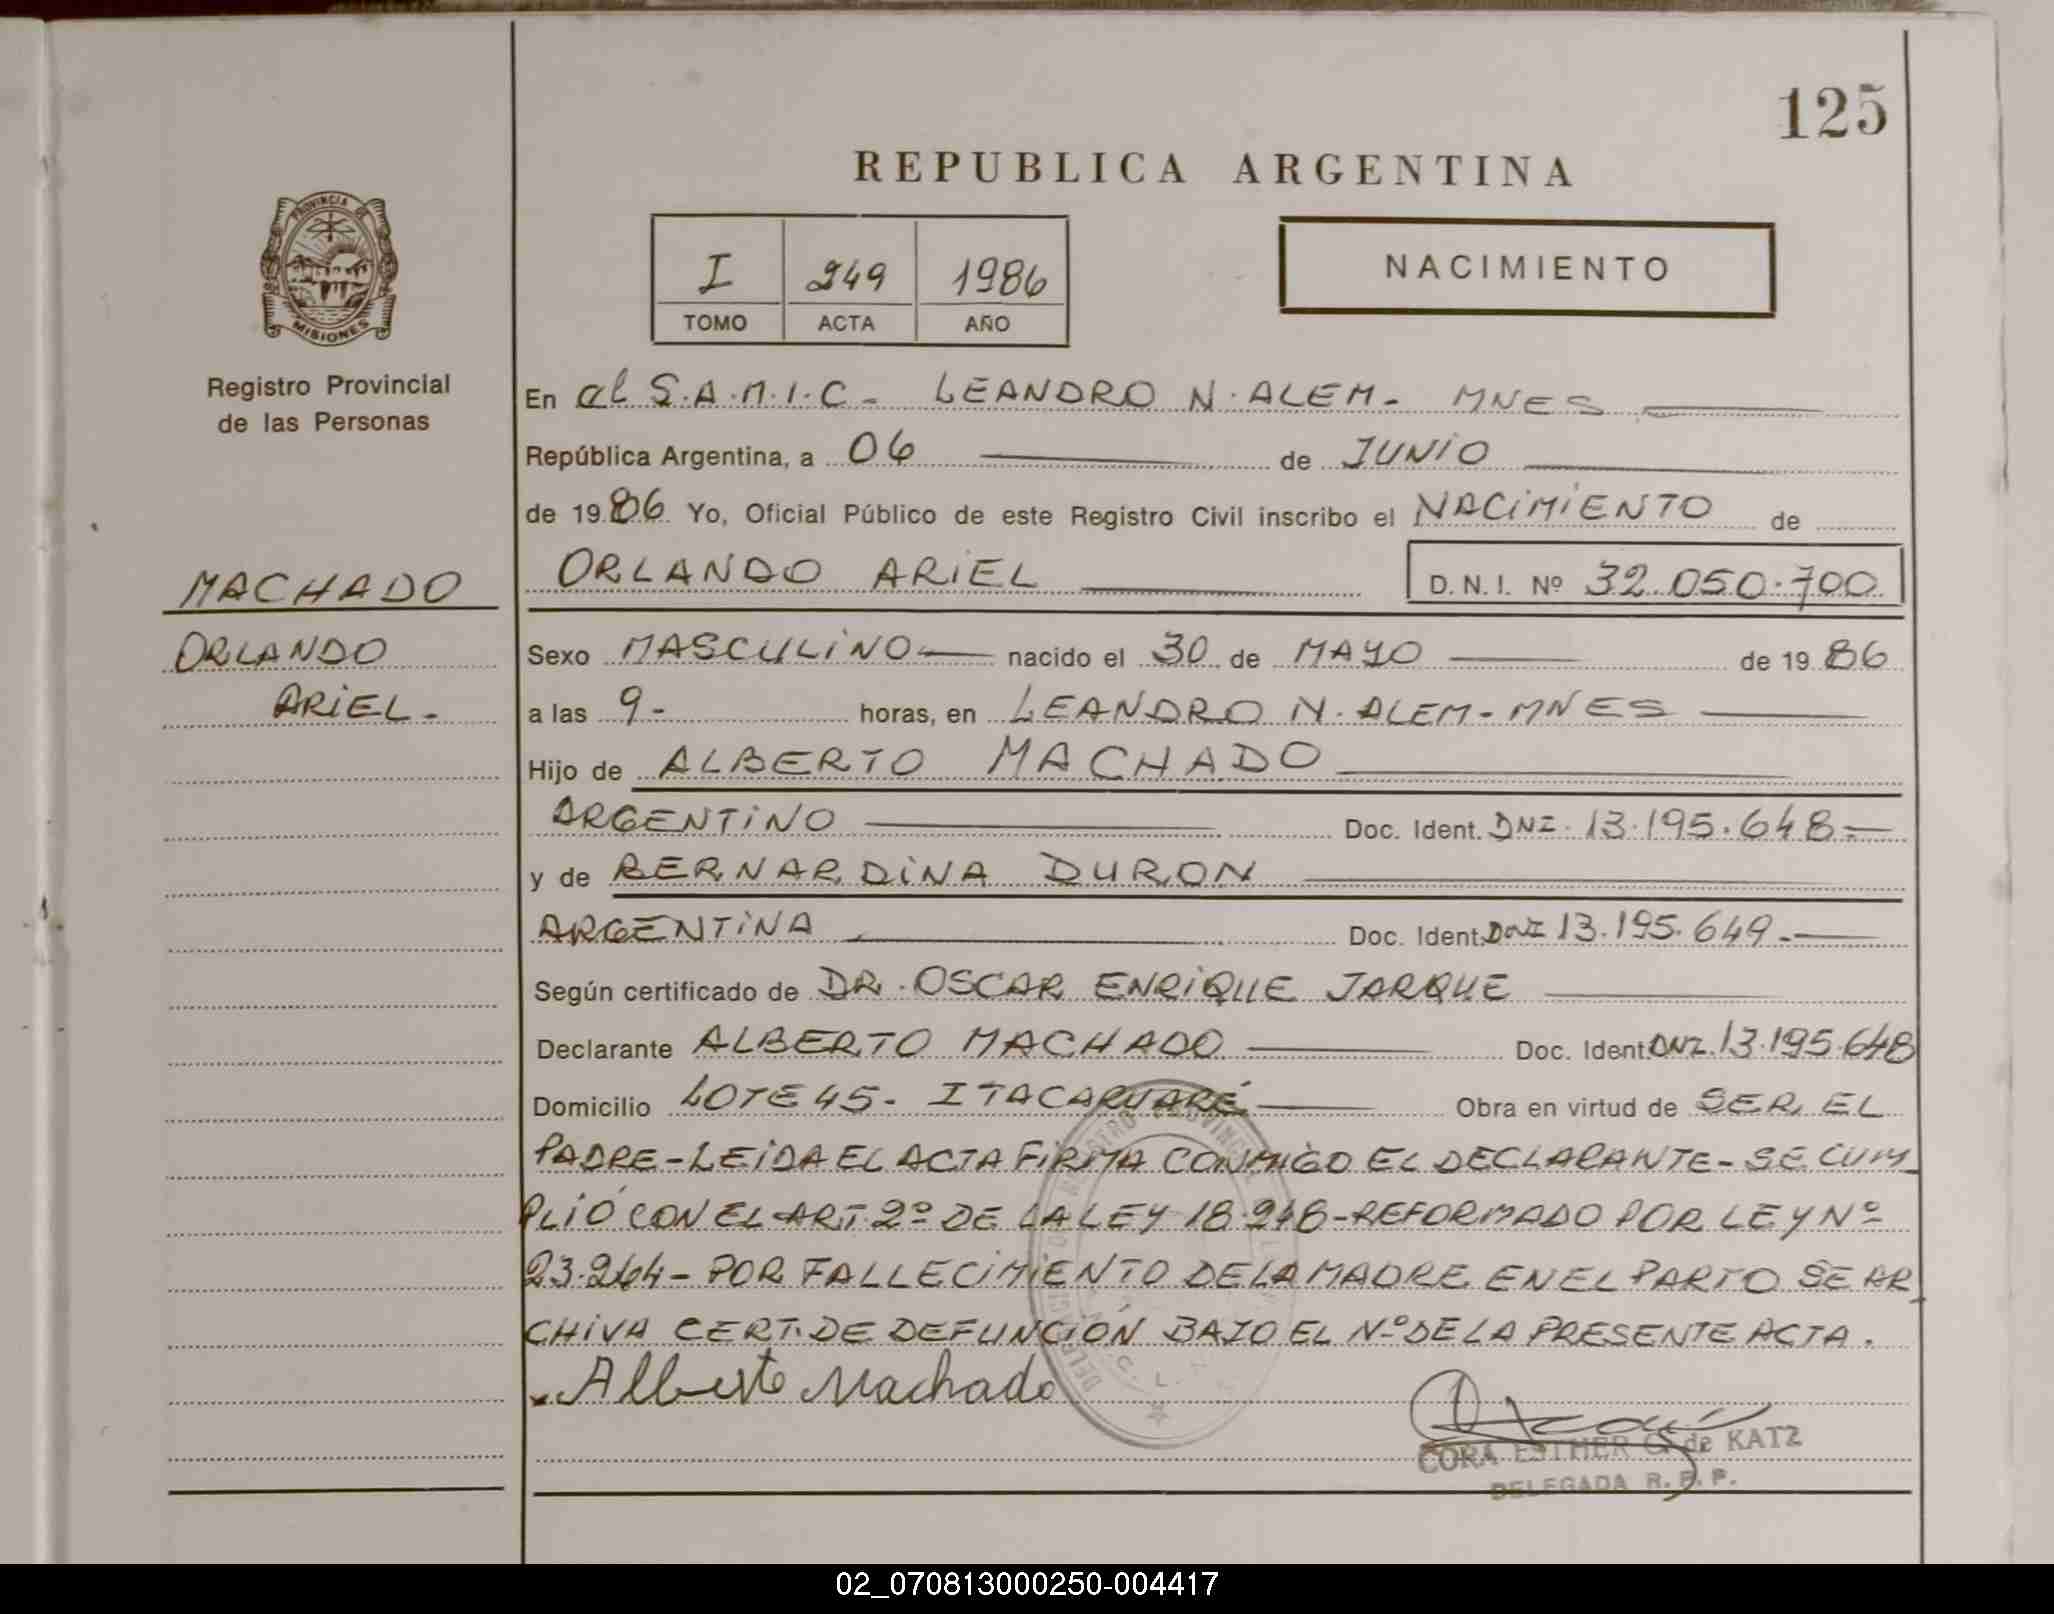 125
REPUBLICA ARGENTINA
PROVINCIA DE
MISIONES
Registro Provincial
de las Personas
I 249 1986
TOMO ACTA AÑO
NACIMIENTO
En el S.A.M.I.C - LEANDRO N. ALEM - MNES
República Argentina, a 06 de JUNIO
de 1986 Yo, Oficial Público de este Registro Civil inscribo el NACIMIENTO de
ORLANDO ARIEL D. N. I. Nº 32.050.700
MACHADO
ORLANDO
ARIEL -
Sexo MASCULINO nacido el 30 de MAYO de 1986
a las 9 - horas, en LEANDRO N. ALEM - MNES
Hijo de ALBERTO MACHADO
ARGENTINO Doc. Ident. DNI. 13.195.648 =
y de BERNARDINA DURON
ARGENTINA Doc. Ident. DNI 13.195.649 -
Según certificado de DR. OSCAR ENRIQUE JARQUE
Declarante ALBERTO MACHADO Doc. Ident DNI. 13.195.648
Domicilio LOTE 45 - ITACARUARÉ Obra en virtud de SER EL
PADRE - LEIDA EL ACTA FIRMA CONMIGO EL DECLARANTE - SE CUM
PLIÓ CON EL ART. 2º DE LA LEY 18.248 - REFORMADO POR LEY Nº
23.264 - POR FALLECIMIENTO DE LA MADRE EN EL PARTO SE AR
CHIVA CERT. DE DEFUNCIÓN BAJO EL Nº DE LA PRESENTE ACTA.
Alberto Machado
CORA ESTHER G. de KATZ
DELEGADA R. P. P.
02_070813000250-004417